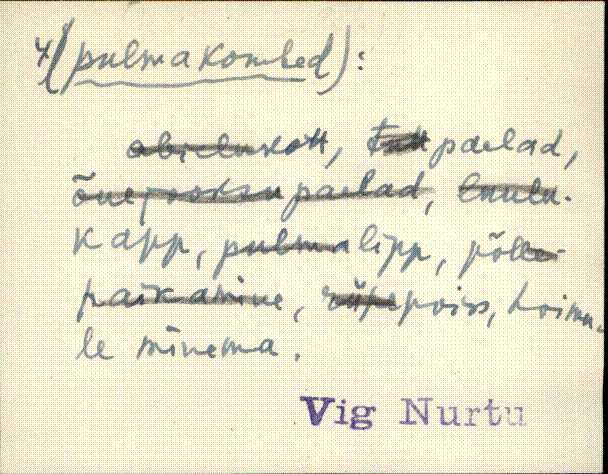 4) (pulmakombed):
abielukott, paelad,
õnejooksu paelad, luulu-
kapp, pulmalipp, põlle-
paikamine, rüüpepoiss, hoimu-
le minema.
Vig Nurtu